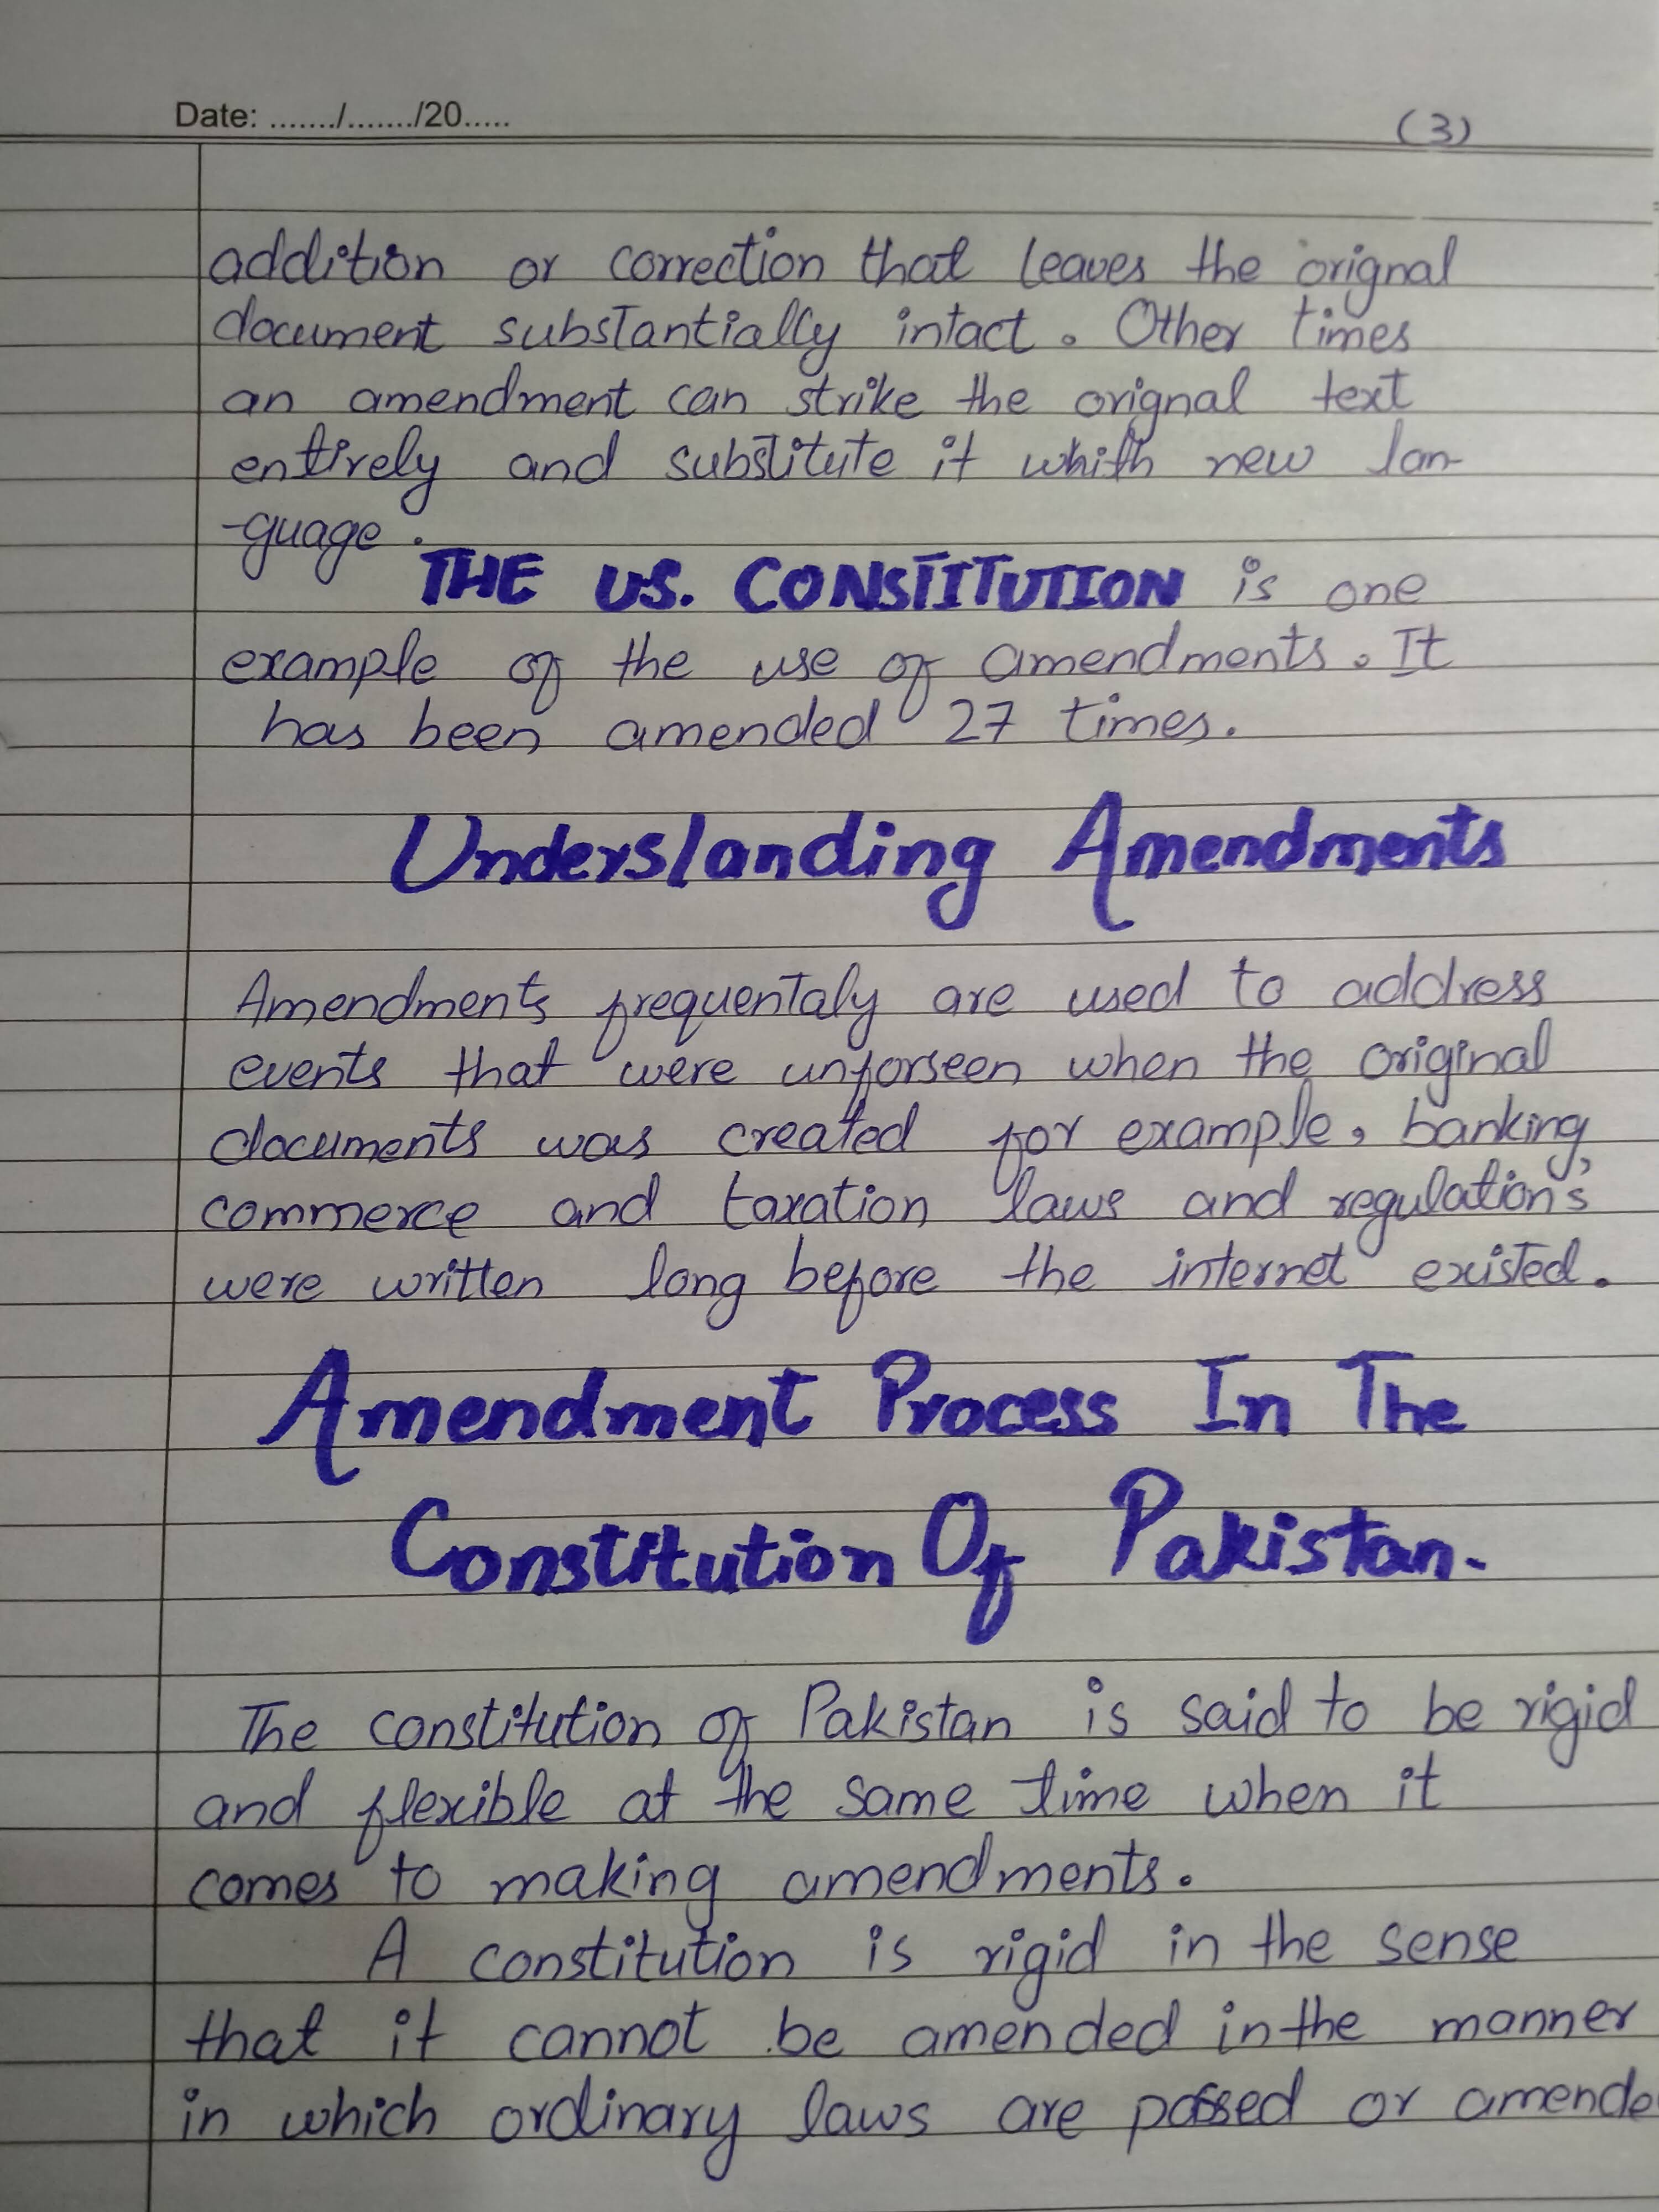 Date: ......./......./20.....
(3)
addition or correction that leaves the orignal
document substantially intact. Other times
an amendment can strike the orignal text
entirely and substitute it whith new lan-
-guage.
THE US. CONSTITUTION is one
example of the use of amendments. It
has been amended 27 times.
Understanding Amendments
Amendments frequentaly are used to address
events that were unforseen when the original
documents was created for example, banking,
commerce and taxation laws and regulations
were written long before the internet existed.
Amendment Process In The
Constitution Of Pakistan.
The constitution of Pakistan is said to be rigid
and flexible at the same time when it
comes to making amendments.
A constitution is rigid in the sense
that it cannot be amended in the manner
in which ordinary laws are passed or amende